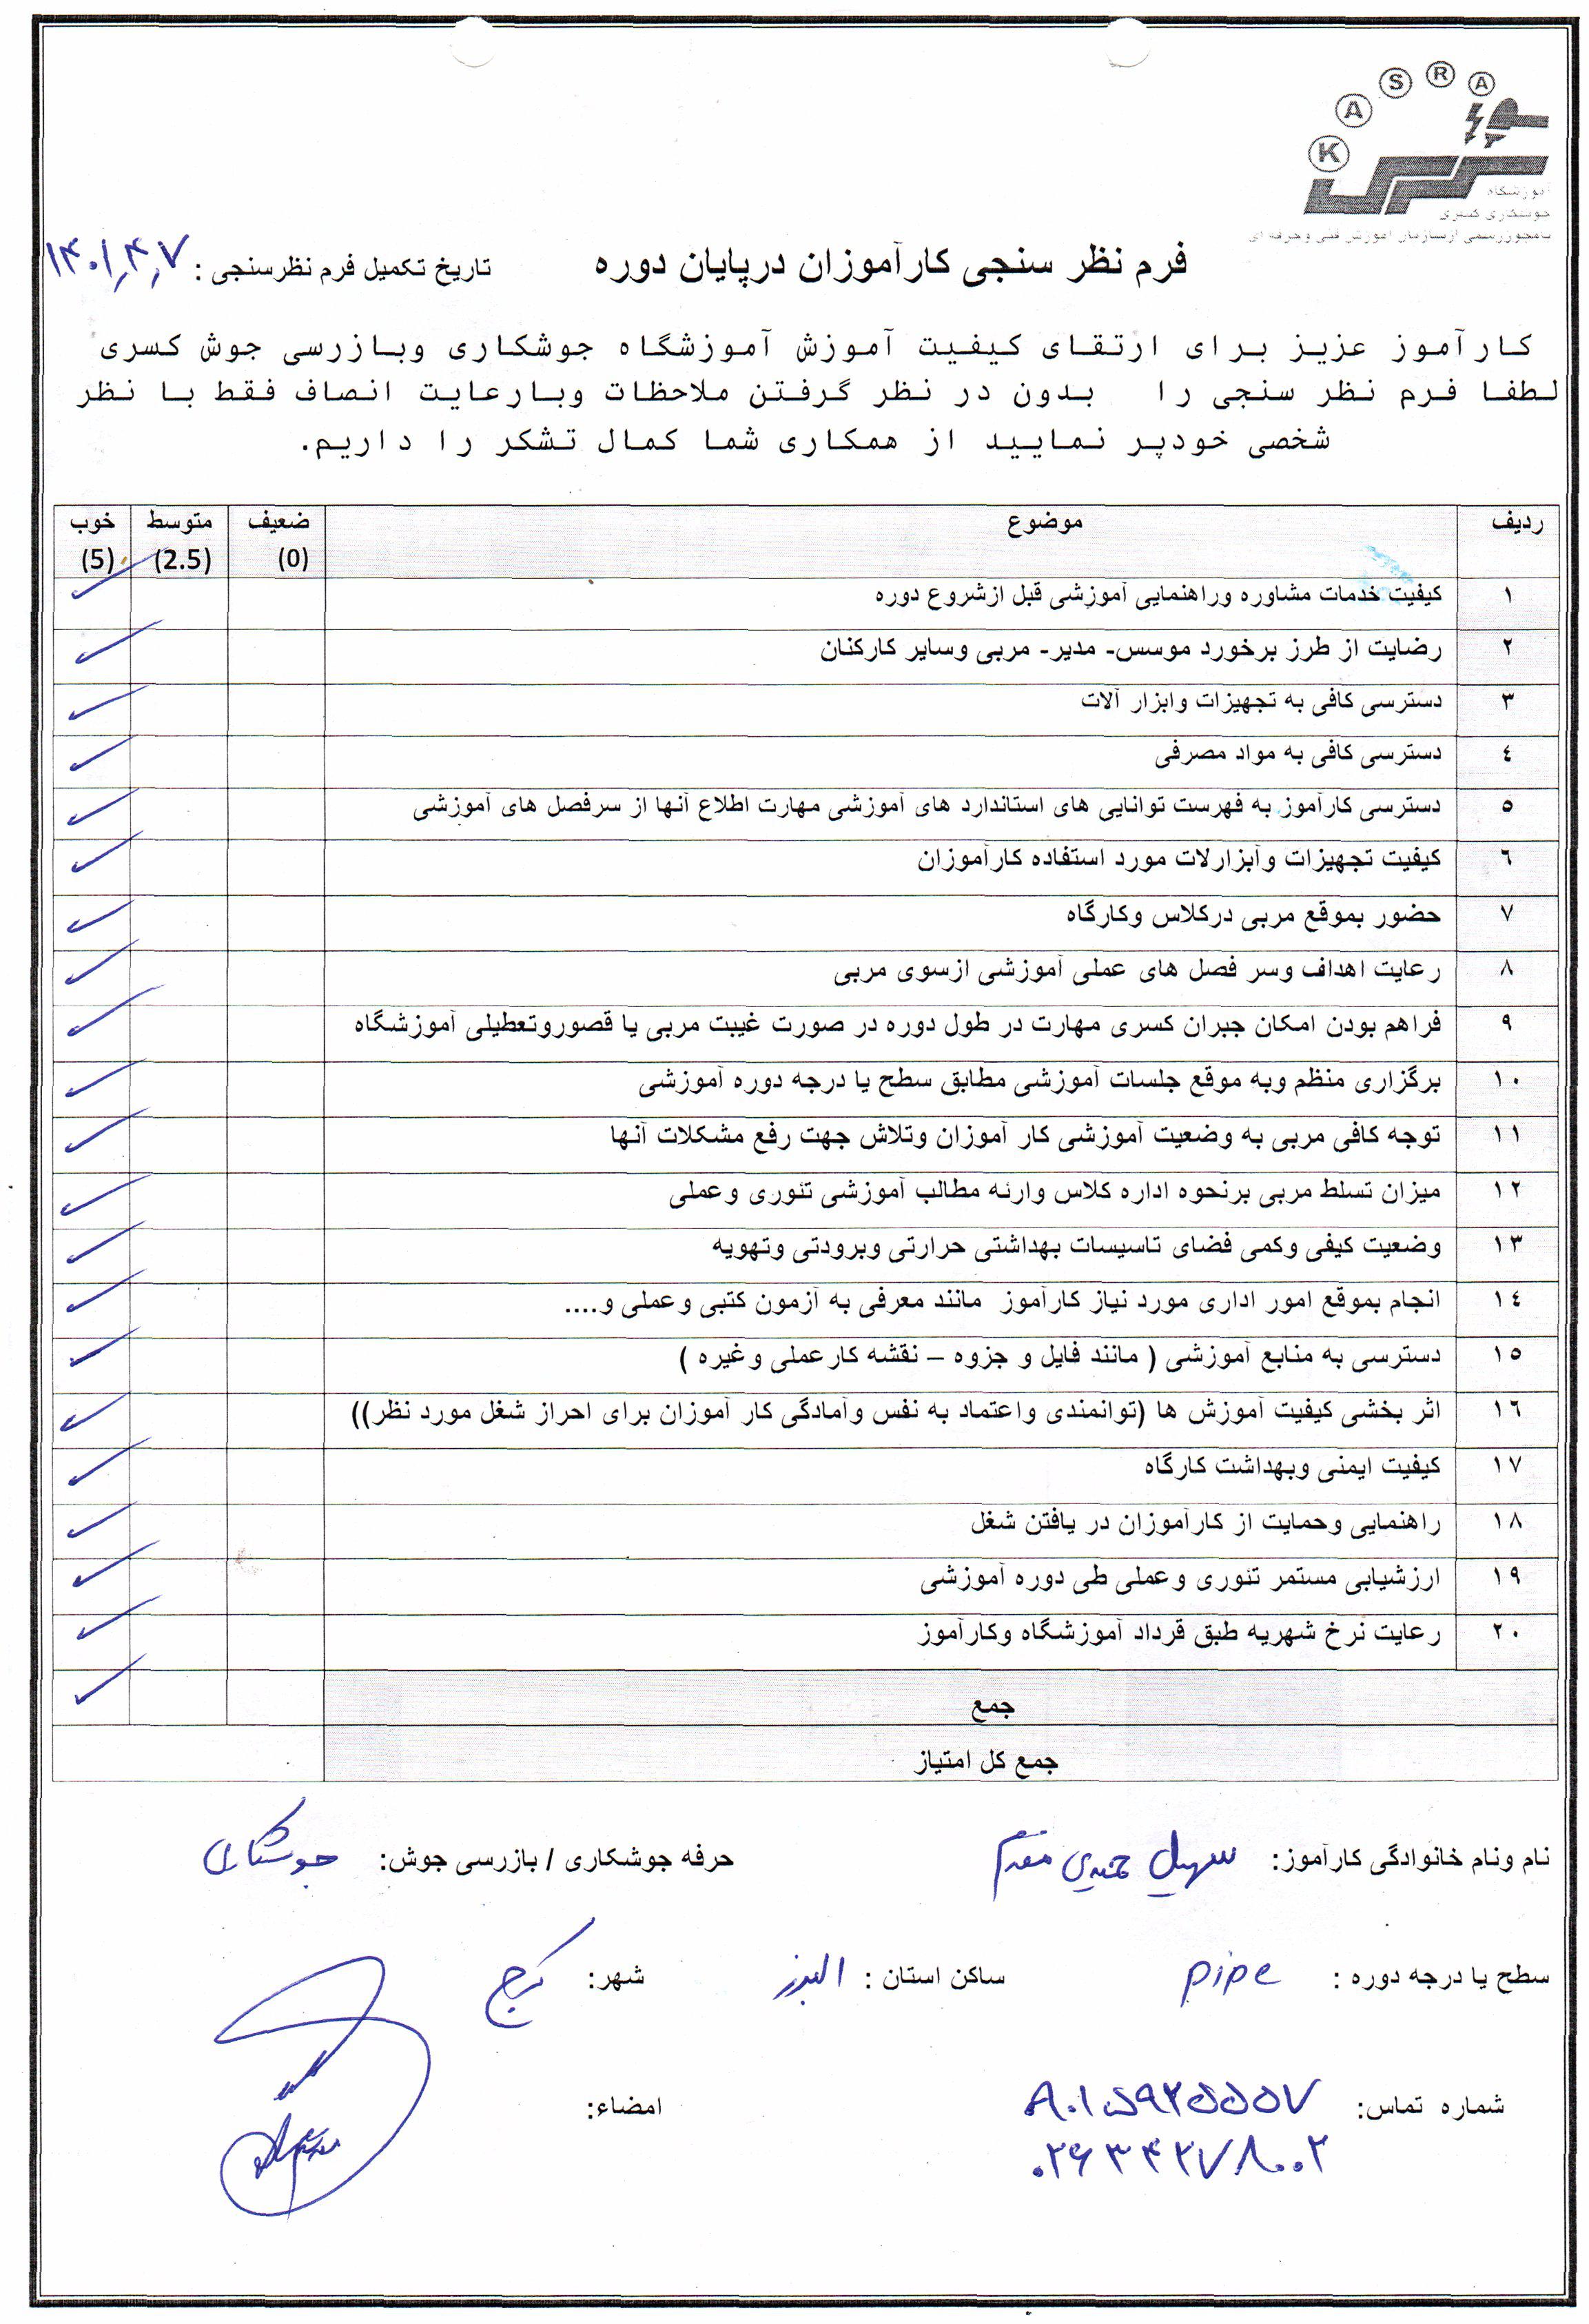 K A S R A
آموزشگاه
جوشکاری کسری
بامجوزرسمی ازسازمان آموزش فنی وحرفه ای
فرم نظر سنجی کارآموزان درپایان دوره
تاریخ تکمیل فرم نظرسنجی : ۱۴۰۱,۴,۷
کارآموز عزیز برای ارتقای کیفیت آموزش آموزشگاه جوشکاری وبازرسی جوش کسری
لطفا فرم نظر سنجی را بدون در نظر گرفتن ملاحظات وبارعایت انصاف فقط با نظر
شخصی خودپر نمایید از همکاری شما کمال تشکر را داریم.
ردیف موضوع ضعیف (0) متوسط (2.5) خوب (5)
۱ کیفیت خدمات مشاوره وراهنمایی آموزشی قبل ازشروع دوره ✓
۲ رضایت از طرز برخورد موسس- مدیر- مربی وسایر کارکنان ✓
۳ دسترسی کافی به تجهیزات وابزار آلات ✓
٤ دسترسی کافی به مواد مصرفی ✓
٥ دسترسی کارآموز به فهرست توانایی های استاندارد های آموزشی مهارت اطلاع آنها از سرفصل های آموزشی ✓
٦ کیفیت تجهیزات وآبزارلات مورد استفاده کارآموزان ✓
۷ حضور بموقع مربی درکلاس وکارگاه ✓
۸ رعایت اهداف وسر فصل های عملی آموزشی ازسوی مربی ✓
۹ فراهم بودن امکان جبران کسری مهارت در طول دوره در صورت غیبت مربی یا قصوروتعطیلی آموزشگاه ✓
۱۰ برگزاری منظم وبه موقع جلسات آموزشی مطابق سطح یا درجه دوره آموزشی ✓
۱۱ توجه کافی مربی به وضعیت آموزشی کار آموزان وتلاش جهت رفع مشکلات آنها ✓
۱۲ میزان تسلط مربی برنحوه اداره کلاس وارئه مطالب آموزشی تئوری وعملی ✓
۱۳ وضعیت کیفی وکمی فضای تاسیسات بهداشتی حرارتی وبرودتی وتهویه ✓
۱٤ انجام بموقع امور اداری مورد نیاز کارآموز مانند معرفی به آزمون کتبی وعملی و.... ✓
۱٥ دسترسی به منابع آموزشی ( مانند فایل و جزوه – نقشه کارعملی وغیره ) ✓
۱٦ اثر بخشی کیفیت آموزش ها (توانمندی واعتماد به نفس وآمادگی کار آموزان برای احراز شغل مورد نظر)) ✓
۱۷ کیفیت ایمنی وبهداشت کارگاه ✓
۱۸ راهنمایی وحمایت از کارآموزان در یافتن شغل ✓
۱۹ ارزشیابی مستمر تئوری وعملی طی دوره آموزشی ✓
۲۰ رعایت نرخ شهریه طبق قرداد آموزشگاه وکارآموز ✓
جمع ✓
جمع کل امتیاز
نام ونام خانوادگی کارآموز: سهیل حمیدی مقدم حرفه جوشکاری / بازرسی جوش: جوشکاری
سطح یا درجه دوره : pipe ساکن استان : البرز شهر: کرج
شماره تماس: ۹۰۱۵۹۲۵۵۵۷ امضاء:
۰۲۶۳۴۲۷۸۰۰۲